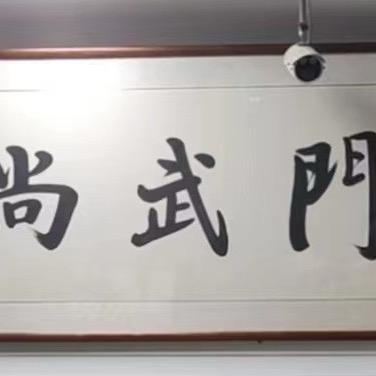 尚武門